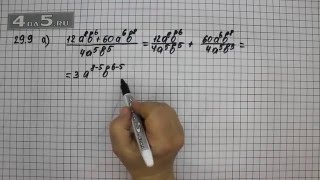 4na5.ru
29.9 a) (12a⁸b⁶ + 60a⁶b⁸) / 4a⁵b⁵ = 12a⁸b⁶ / 4a⁵b⁵ + 60a⁶b⁸ / 4a⁵b⁵ =
= 3a⁸⁻⁵b⁶⁻⁵